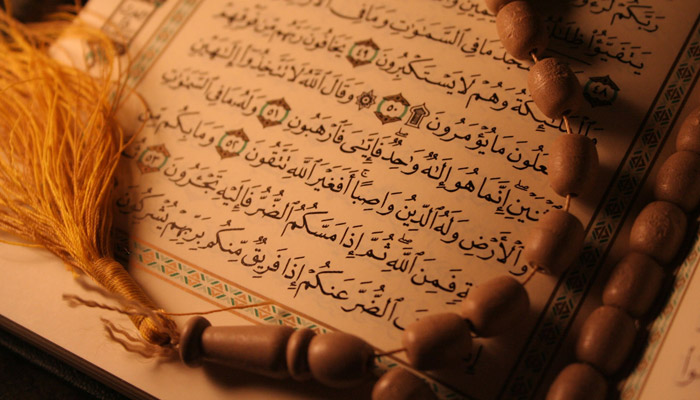 رَبَّكُمْ
يَتَفَيَّؤُا۟ ظِلَٰلُهُ
٤٨ مَا فِى ٱلسَّمَٰوَٰتِ وَمَا فِى
ٱلْمَلَٰٓئِكَةُ وَهُمْ لَا يَسْتَكْبِرُونَ ٤٩ يَخَافُونَ رَبَّهُم مِّن فَوْقِهِمْ
عَلُونَ مَا يُؤْمَرُونَ ۩ ٥٠ ۞ وَقَالَ ٱللَّهُ لَا تَتَّخِذُوٓا۟ إِلَٰهَيْنِ
نَيْنِ إِنَّمَا هُوَ إِلَٰهٌ وَٰحِدٌ فَإِيَّٰىَ فَٱرْهَبُونِ ٥١ وَلَهُۥ مَا فِى ٱلسَّمَٰوَٰتِ
وَٱلْأَرْضِ وَلَهُ ٱلدِّينُ وَاصِبًا أَفَغَيْرَ ٱللَّهِ تَتَّقُونَ ٥٢ وَمَا بِكُم مِّن
ةٍ فَمِنَ ٱللَّهِ ثُمَّ إِذَا مَسَّكُمُ ٱلضُّرُّ فَإِلَيْهِ تَجْـَٔرُونَ ٥٣
ٱلضُّرَّ عَنكُمْ إِذَا فَرِيقٌ مِّنكُم بِرَبِّهِمْ يُشْرِكُونَ